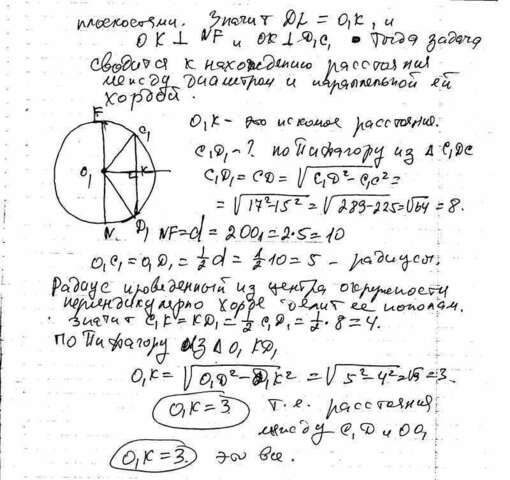 плоскостями. Значит DL = O,K, и
OK ⊥ NF и OK ⊥ D,C, Тогда задача
сводится к нахождению расстояния
между диаметром и параллельной ей
хордой.
F
C1
O1
K
N
D1
O,K - это искомое расстояние.
C,D, - ? по Пифагору из Δ C,DC
C,D, = CD = √C,D² - C,C² =
= √17² - 15² = √289 - 225 = √64 = 8.
NF = d = 2OO, = 2·5 = 10
O,C, = O,D, = 1/2 d = 1/2 10 = 5 - радиусы.
Радиус проведенный из центра окружности
перпендикулярно хорде делит её пополам.
Значит C,K = KD, = 1/2 C,D, = 1/2 · 8 = 4.
По Пифагору из Δ O, KD,
O,K = √O,D² - D,K² = √5² - 4² = √9 = 3.
O,K = 3 т.е. расстояния
между C,D и OO,
O,K = 3. это все.